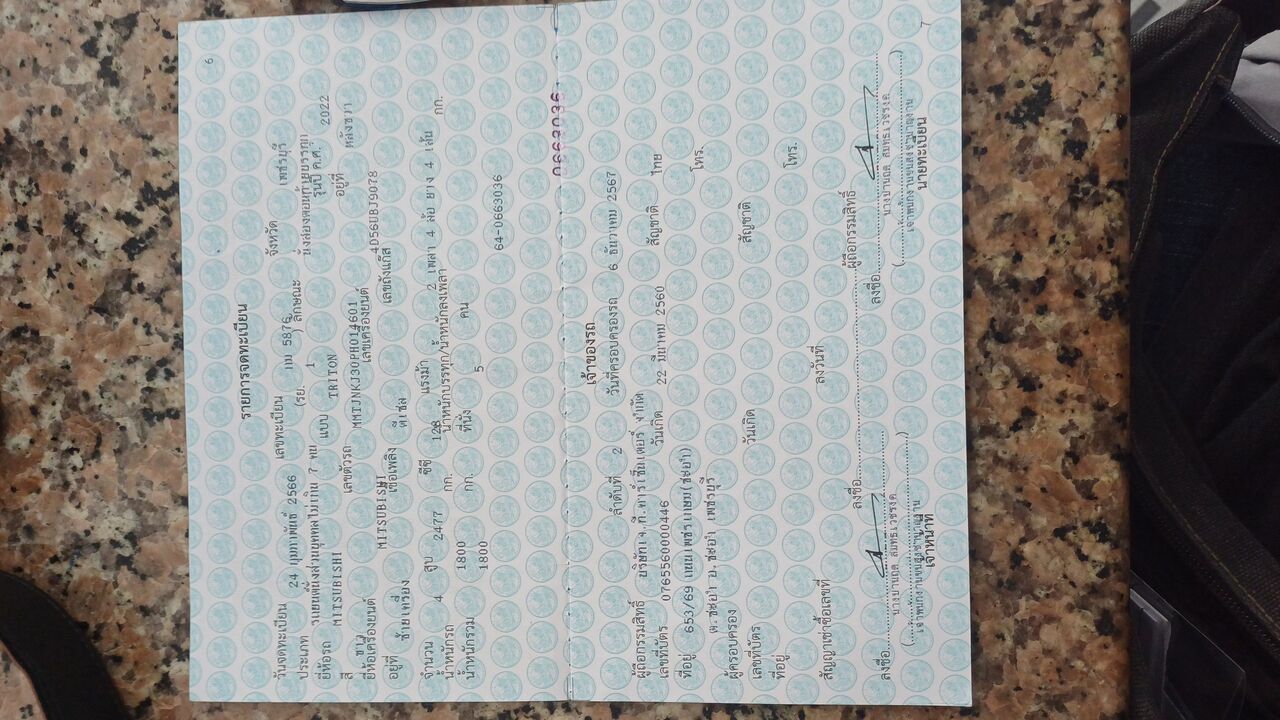 6
รายการจดทะเบียน
วันจดทะเบียน 24 กุมภาพันธ์ 2566 เลขทะเบียน 5876 จังหวัด เพชรบุรี
ประเภท รถยนต์นั่งส่วนบุคคลไม่เกิน 7 คน (รย. 1 ) ลักษณะ นั่งสองตอนท้ายบรรทุก
ยี่ห้อรถ MITSUBISHI แบบ TRITON รุ่นปี ค.ศ. 2022
สี ขาว เลขตัวรถ MMTJNKJ30PH014601 อยู่ที่ หลังขวา
ยี่ห้อเครื่องยนต์ MITSUBISHI เลขเครื่องยนต์ 4D56UBJ9078
อยู่ที่ ซ้ายเครื่อง เชื้อเพลิง ดีเซล เลขถังแก๊ส
จำนวน 4 สูบ 2477 ซีซี 128 แรงม้า 2 เพลา 4 ล้อ ยาง 4 เส้น
น้ำหนักรถ 1800 กก. น้ำหนักบรรทุก/น้ำหนักลงเพลา กก.
น้ำหนักรวม 1800 กก. ที่นั่ง 5 คน
64-0663036
เจ้าของรถ
ลำดับที่ 2 วันที่ครอบครองรถ 6 ธันวาคม 2567
ผู้ถือกรรมสิทธิ์ บริษัท จำกัด สัญชาติ ไทย
เลขที่บัตร 0765560000446 วันเกิด 22 มีนาคม 2560
ที่อยู่ 653/69 ถนนเพชรเกษม(ชะอำ) โทร.
ต.ชะอำ อ.ชะอำ เพชรบุรี
ผู้ครอบครอง
เลขที่บัตร วันเกิด สัญชาติ
ที่อยู่ โทร.
สัญญาเช่าซื้อเลขที่ ลงวันที่
ลงชื่อ ผู้ถือกรรมสิทธิ์
ลงชื่อ ลงชื่อ
เจ้าหน้าที่ นายทะเบียน
7